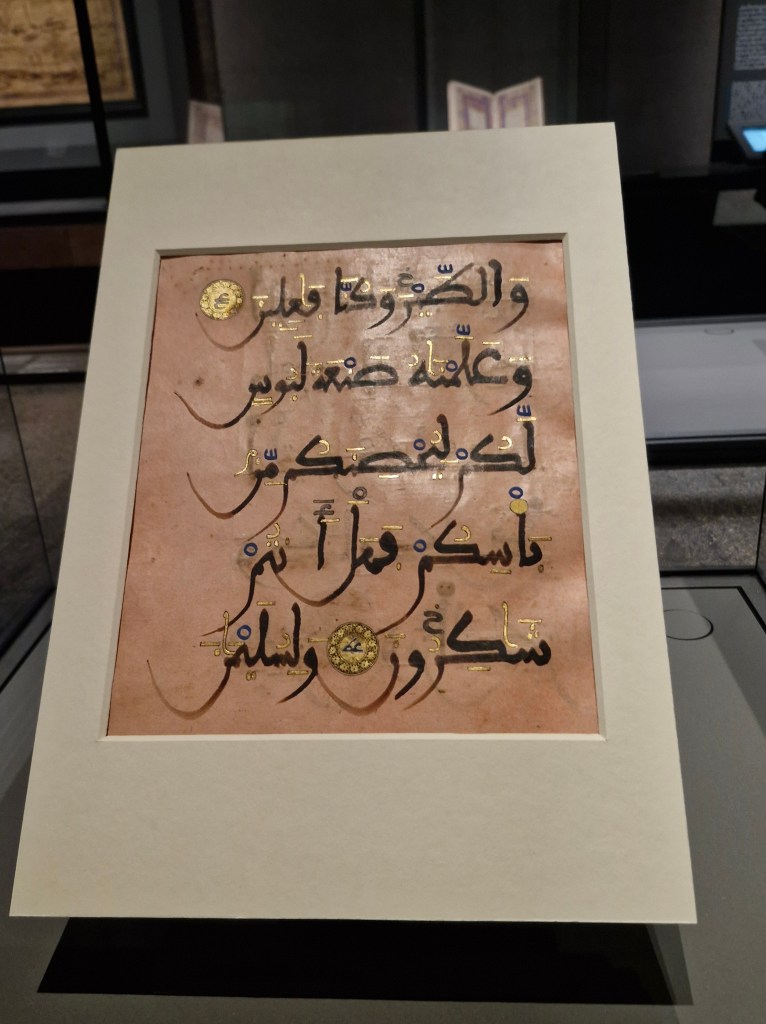 وَالطَّيْرَ وَكُنَّا فَٰعِلِينَ
وَعَلَّمْنَٰهُ صَنْعَةَ لَبُوسٍ
لَّكُمْ لِيُحْصِنَكُم مِّنۢ
بَأْسِكُمْ فَهَلْ أَنتُمْ
شَٰكِرُونَ وَلِسُلَيْمَٰنَ